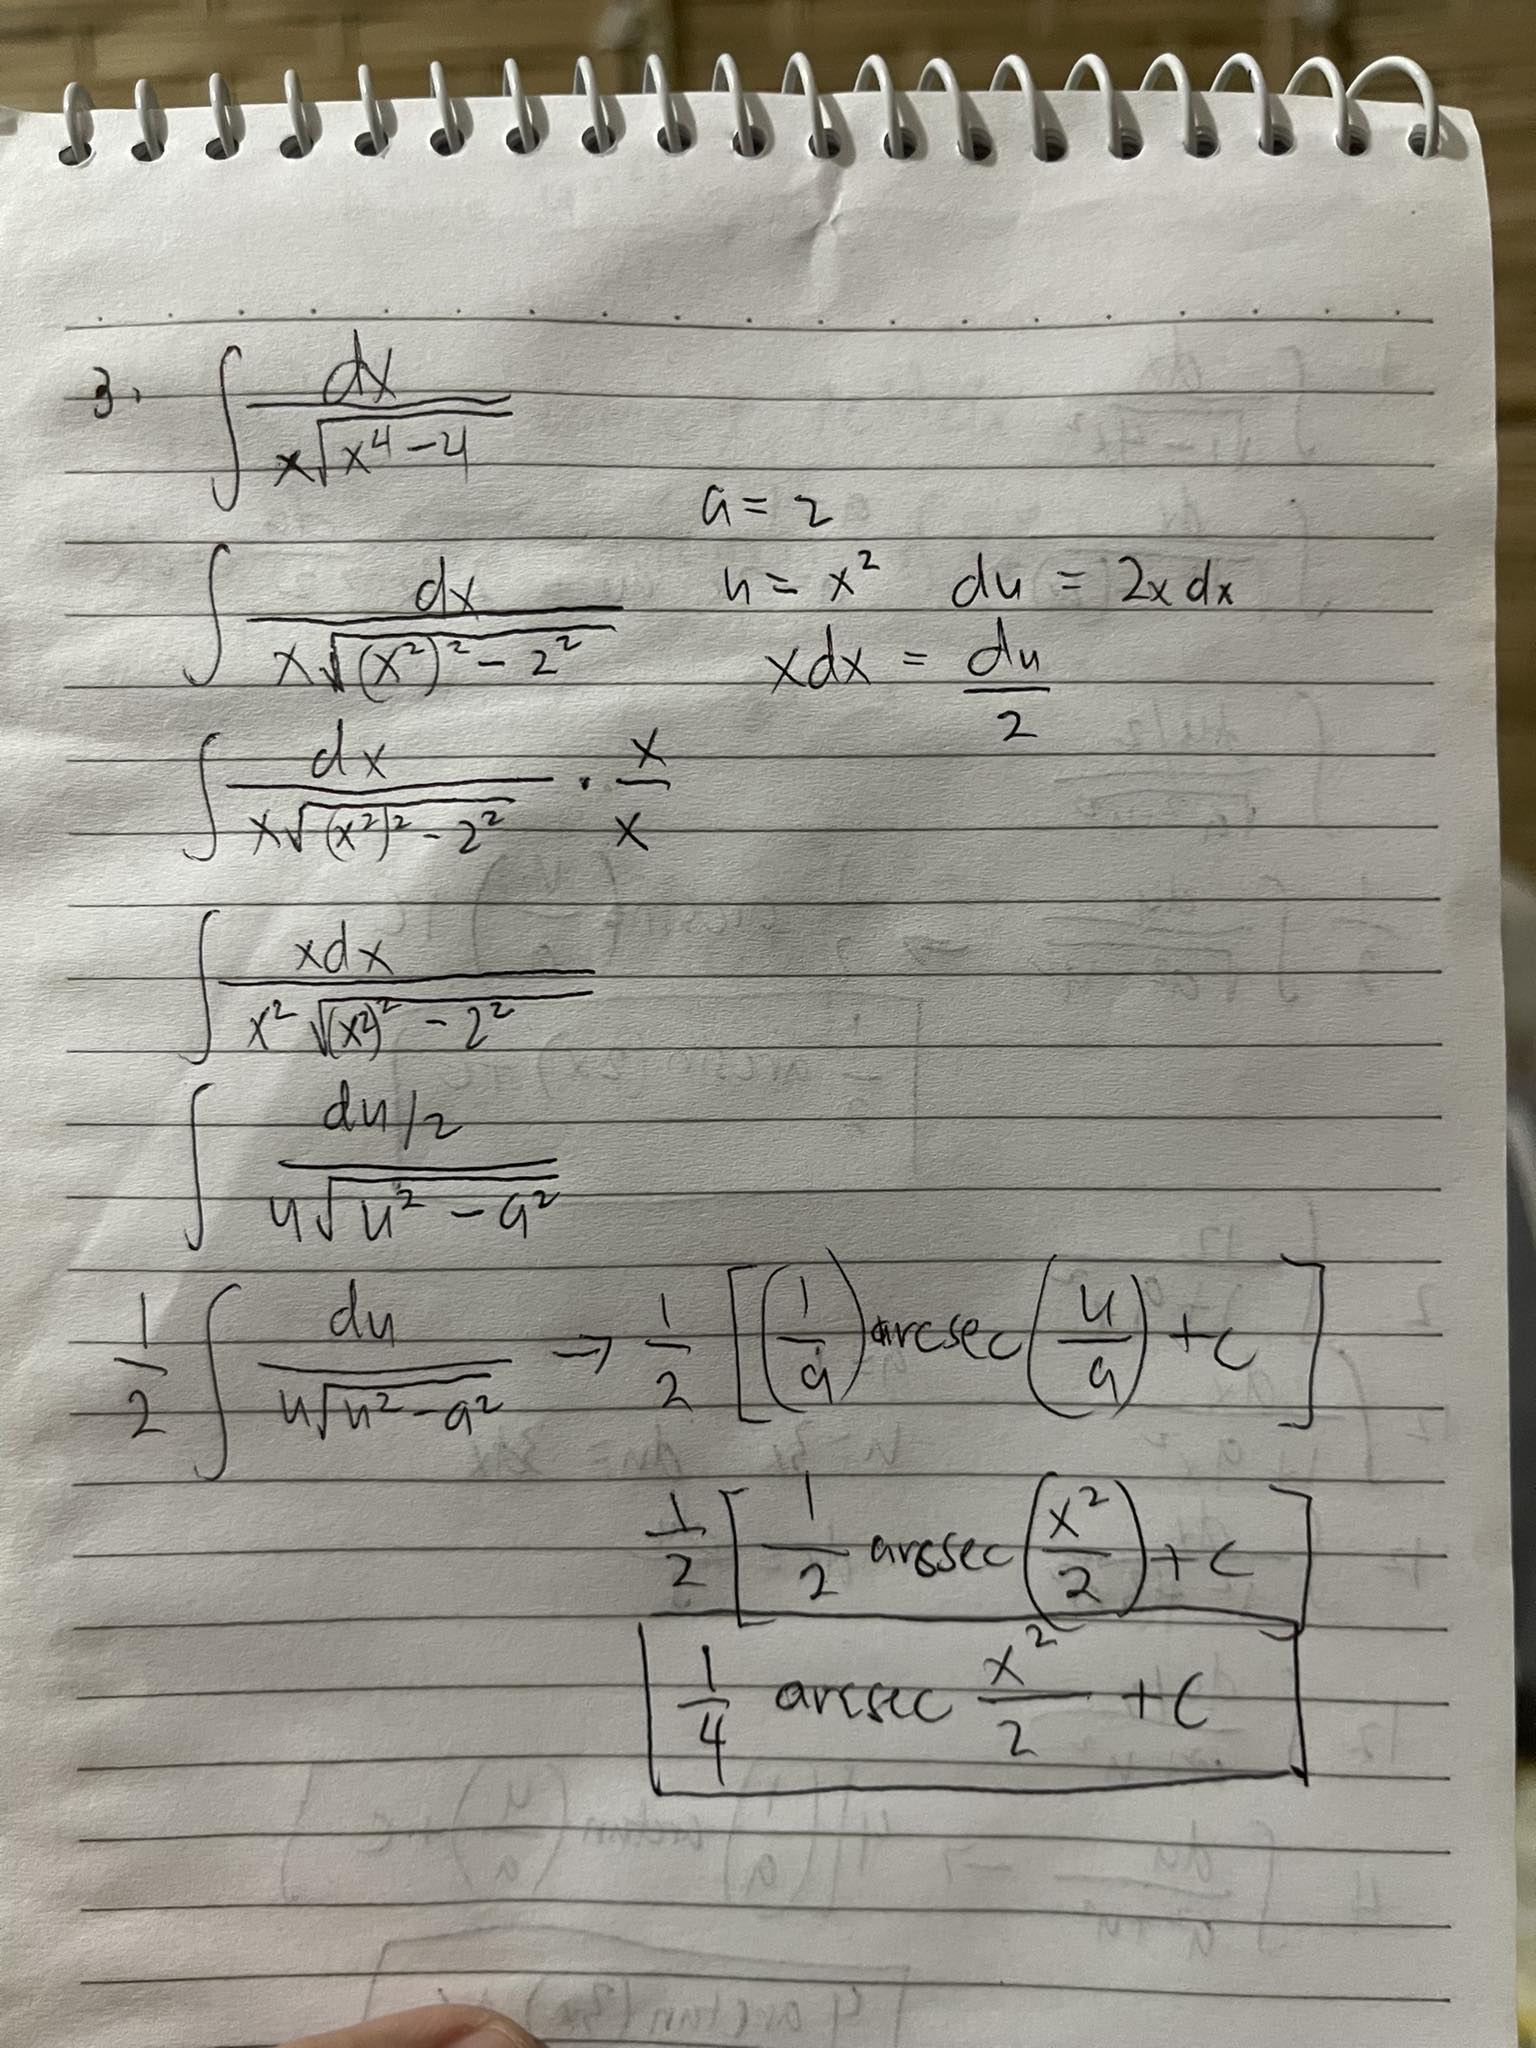 3. ∫ dx / x√(x⁴ − 4)
a = 2
∫ dx / x√((x²)² − 2²)
u = x² du = 2x dx
xdx = du / 2
∫ dx / x√((x²)² − 2²) · x / x
∫ xdx / x² √((x²)² − 2²)
∫ du/2 / u√(u² − a²)
1/2 ∫ du / u√(u² − a²) → 1/2 [(1/a) arcsec (u/a) + C]
1/2 [1/2 arcsec (x²/2) + C]
1/4 arcsec x²/2 + C